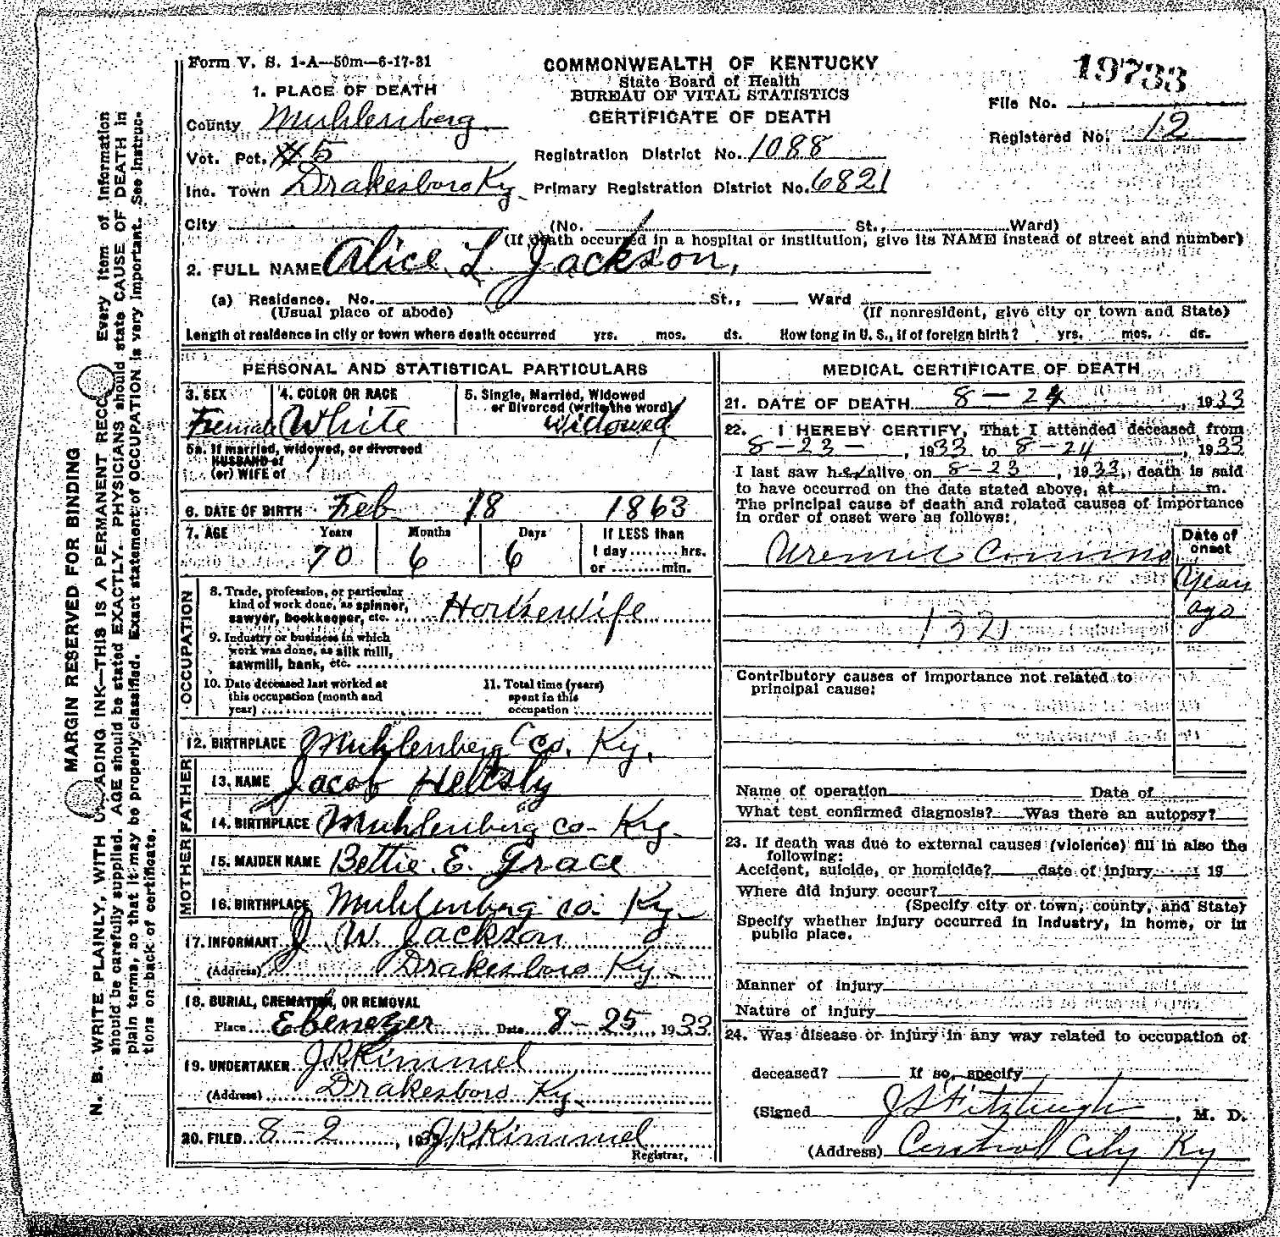 Form V. S. 1-A—50m—6-17-31
COMMONWEALTH OF KENTUCKY
State Board of Health
BUREAU OF VITAL STATISTICS
CERTIFICATE OF DEATH
19733
File No.
Registered No. 12
1. PLACE OF DEATH
County Muhlenberg
Vot. Pct. #5
Inc. Town Drakesboro Ky.
Registration District No. 1088
Primary Registration District No. 6821
City (No. St., Ward)
(If death occurred in a hospital or institution, give its NAME instead of street and number)
2. FULL NAME Alice L. Jackson,
(a) Residence. No. St., Ward
(Usual place of abode) (If nonresident, give city or town and State)
Length of residence in city or town where death occurred yrs. mos. ds. How long in U. S., if of foreign birth? yrs. mos. ds.
PERSONAL AND STATISTICAL PARTICULARS
3. SEX
Female
4. COLOR OR RACE
White
5. Single, Married, Widowed
or Divorced (write the word)
Widowed
5a. If married, widowed, or divorced
HUSBAND of
(or) WIFE of
6. DATE OF BIRTH Feb 18 1863
7. AGE Years Months Days If LESS than
1 day........hrs.
70 6 6 or ........min.
OCCUPATION
8. Trade, profession, or particular
kind of work done, as spinner,
sawyer, bookkeeper, etc. Housewife
9. Industry or business in which
work was done, as silk mill,
sawmill, bank, etc.
10. Date deceased last worked at
this occupation (month and
year)
11. Total time (years)
spent in this
occupation
12. BIRTHPLACE Muhlenberg Co. Ky.
FATHER
13. NAME Jacob Heltsly
14. BIRTHPLACE Muhlenberg Co. Ky.
MOTHER
15. MAIDEN NAME Bettie. E. Grace
16. BIRTHPLACE Muhlenberg Co. Ky.
17. INFORMANT J W Jackson
(Address) Drakesboro Ky.
18. BURIAL, CREMATION, OR REMOVAL
Place Ebenezer Date 8-25, 1933
19. UNDERTAKER J.K. Kimmel
(Address) Drakesboro Ky.
20. FILED 8-2, 19 J.K. Kimmel
Registrar.
MEDICAL CERTIFICATE OF DEATH
21. DATE OF DEATH 8-24, 1933
22. I HEREBY CERTIFY, That I attended deceased from
8-23-, 1933 to 8-24, 1933
I last saw her alive on 8-23, 1933, death is said
to have occurred on the date stated above, at m.
The principal cause of death and related causes of importance
in order of onset were as follows:
Date of
onset
Uremic
Years
ago
132
Contributory causes of importance not related to
principal cause:
Name of operation Date of
What test confirmed diagnosis? Was there an autopsy?
23. If death was due to external causes (violence) fill in also the
following:
Accident, suicide, or homicide? date of injury 19
Where did injury occur?
(Specify city or town, county, and State)
Specify whether injury occurred in industry, in home, or in
public place.
Manner of injury
Nature of injury
24. Was disease or injury in any way related to occupation of
deceased? If so, specify
(Signed J S Fitzhugh, M. D.
(Address) Central City Ky
MARGIN RESERVED FOR BINDING
N. B. WRITE PLAINLY, WITH UNFADING INK—THIS IS A PERMANENT RECORD. Every item of information
should be carefully supplied. AGE should be stated EXACTLY. PHYSICIANS should state CAUSE OF DEATH in
plain terms, so that it may be properly classified. Exact statement of OCCUPATION is very important. See instruc-
tions on back of certificate.